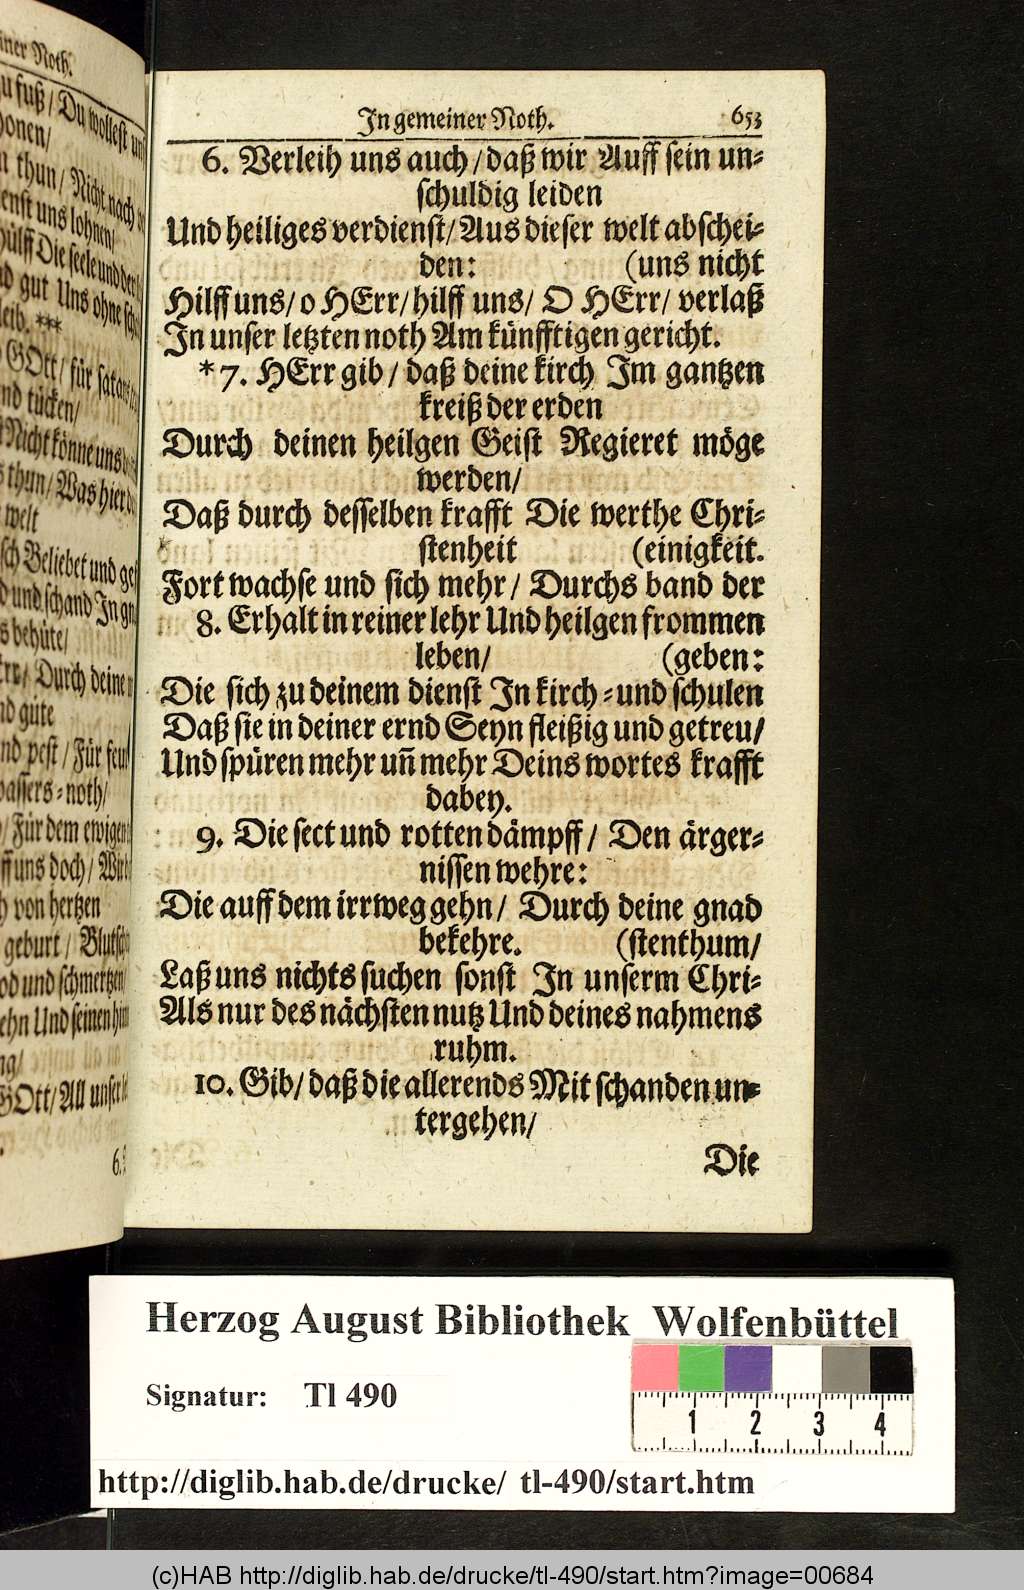 iner Noth.
zu fuß/ Du wollest uns
honen/
n thun/ Nicht nach
enst uns lohnen/
hülff Die seele und der
nd gut Uns ohne
leib. ***
GOtt/ für satans
nd tücken/
Nicht könne uns
thun/ Was hier
welt
sch Beliebet und
d und schand In
s behüte/
Err/ Durch deine
nd güte
nd pest/ Für
wassers-noth/
/ Für dem ewigen
ff uns doch/
h von hertzen
geburt/
od und schmertzen/
ehn Und seinen
ng/
GOtt/ All unser
6.
In gemeiner Noth. 653
6. Verleih uns auch/ daß wir Auff sein un-
schuldig leiden
Und heiliges verdienst/ Aus dieser welt abschei-
den: (uns nicht
Hilff uns/ o HErr/ hilff uns/ O HErr/ verlaß
In unser letzten noth Am künfftigen gericht.
*7. HErr gib/ daß deine kirch Im gantzen
kreiß der erden
Durch deinen heilgen Geist Regieret möge
werden/
Daß durch desselben krafft Die werthe Chri-
stenheit (einigkeit.
Fort wachse und sich mehr/ Durchs band der
8. Erhalt in reiner lehr Und heilgen frommen
leben/ (geben:
Die sich zu deinem dienst In kirch- und schulen
Daß sie in deiner ernd Seyn fleißig und getreu/
Und spüren mehr uñ mehr Deins wortes krafft
dabey.
9. Die sect und rotten dämpff/ Den ärger-
nissen wehre:
Die auff dem irrweg gehn/ Durch deine gnad
bekehre. (stenthum/
Laß uns nichts suchen sonst In unserm Chri-
Als nur des nächsten nutz Und deines nahmens
ruhm.
10. Gib/ daß die allerends Mit schanden un-
tergehen/
Die
Herzog August Bibliothek Wolfenbüttel
Signatur: Tl 490
1 2 3 4
http://diglib.hab.de/drucke/ tl-490/start.htm
(c)HAB http://diglib.hab.de/drucke/tl-490/start.htm?image=00684